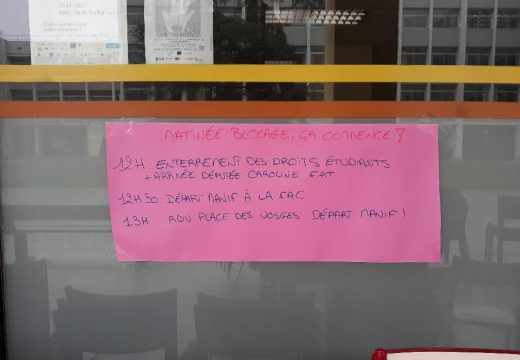 MATINÉE BLOCAGE, ÇA COMMENCE !
12H : ENTERREMENT DES DROITS ÉTUDIANTS
+ ARRIVÉE DÉPUTÉE CAROLINE FIAT
12H30 : DÉPART MANIF À LA FAC
13H RDV PLACE DES VOSGES : DÉPART MANIF !